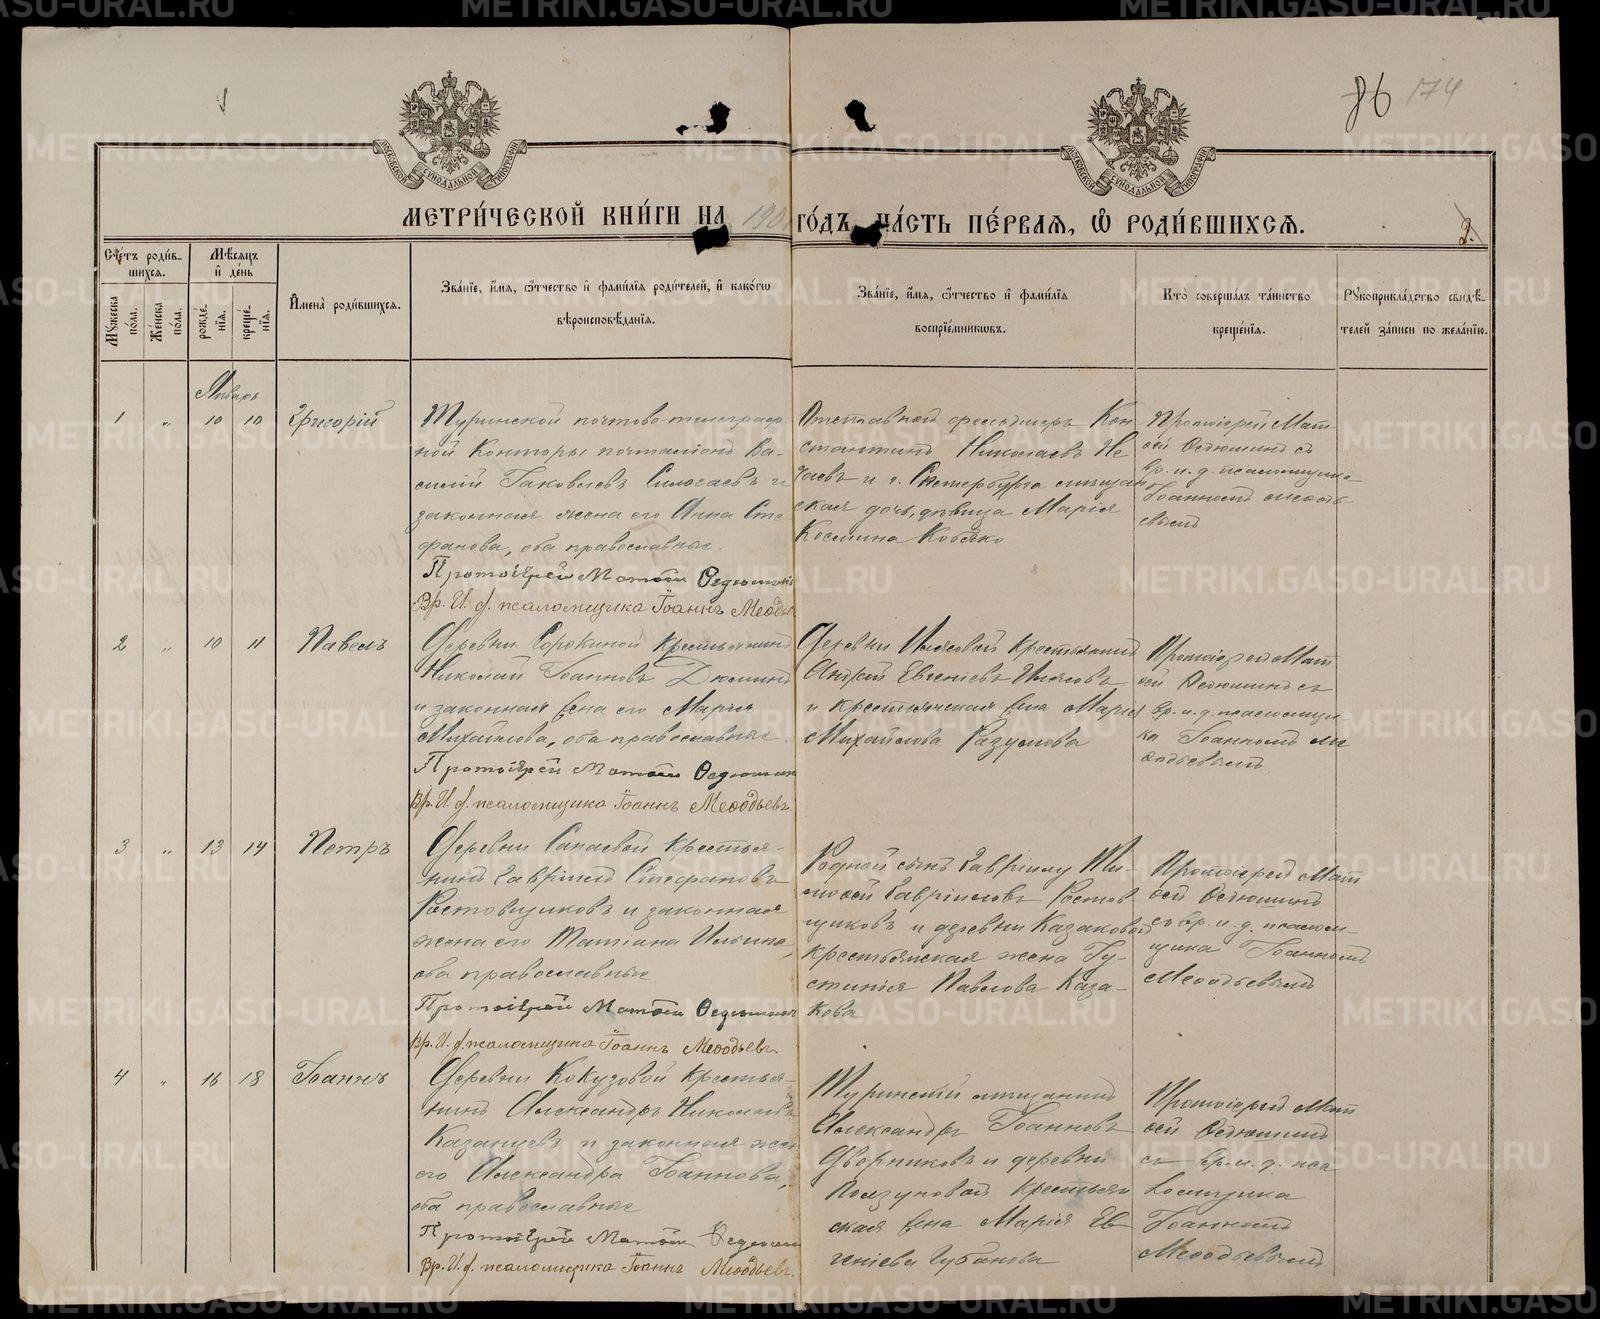 86 174
МОСКОВСКОЙ СѴНОДАЛЬНОЙ ТИПОГРАФІИ
МОСКОВСКОЙ СѴНОДАЛЬНОЙ ТИПОГРАФІИ
МЕТРИ́ЧЕСКОЙ КНИ́ГИ НА 190 ГО́ДЪ, ЧА́СТЬ ПЕ́РВАѦ, Ѡ РОДИ́ВШИХСѦ.
2.
Сче́тъ роди́в-
шихся.
Мѣ́сяцъ
и҆ де́нь
Мꙋ́жеска по́ла.
Же́нска по́ла.
рожде́-нїѧ.
креще́-нїѧ.
И҆мена̀ роди́вшихсѧ.
Зва́нїе, и҆́мѧ, ѻ҆́тчество и҆ фами́лїѧ роди́телей, и҆ како́гѡ
вѣроисповѣ́данїѧ.
Зва́нїе, и҆́мѧ, ѻ҆́тчество и҆ фами́лїѧ
воспрїе́мникѡвъ.
Кто̀ соверша́лъ та́инство
креще́нїѧ.
Рꙋкоприкла́дство свидѣ́-
телей за́писи по жела́нїю.
Январь
1 „ 10 10 Григорій
Туринской почтово-телеграф
ной Конторы почталіонъ Ва-
силій Іаковлевъ и
законная жена его Анна Сте
фанова, оба православные.
Протоіерей Матѳей Ѳедюшинъ
Вр. И. д. псаломщика Іоаннъ Меѳодь
Отставной фельдшеръ Кон
стантинъ Николаевъ Не
чаевъ и г. мѣщан
ская дочь, дѣвица Марія
Космина
Протоіерей Мат
ѳей Ѳедюшинъ съ
вр. и. д. псаломщика
Іоанномъ Меѳодь-
евымъ
2 „ 10 11 Павелъ
Деревни Сорокиной крестьянинъ
Николай Іоанновъ Дюминъ
и законная жена его Марія
Михайлова, оба православные.
Протоіерей Матѳей Ѳедюшин
Вр. И. д. псаломщика Іоаннъ Меѳодьевъ
Деревни крестьянинъ
Андрей Евгеніевъ
и крестьянская жена Марія
Михайлова Разумова
Протоіерей Мат
ѳей Ѳедюшинъ съ
вр. и. д. псаломщи
ка Іоанномъ Ме
ѳодьевымъ.
3 „ 13 14 Петръ
Деревни крестья-
нинъ Гавріилъ Стефановъ
Ростовщиковъ и законная
жена его Татіана Ильина,
оба православные
Протоіерей Матѳей Ѳедюшинъ
Вр. И. д. псаломщика Іоаннъ Меѳодьевъ
Родной сынъ Гавріилу Ти-
моѳей Гавріиловъ Ростов
щиковъ и деревни Казаковой
крестьянская жена Іу-
стинія Павлова Каза-
кова
Протоіерей Мат
ѳей Ѳедюшинъ
съ вр. и. д. псалом-
щика Іоанномъ
Меѳодьевымъ
4 „ 16 18 Іоаннъ
Деревни Кокузовой крестья-
нинъ Александръ Николаевъ
Казанцевъ и законная жена
его Александра Іоаннова,
оба православные
Протоіерей Матѳей Ѳедюшин
Вр. И. д. псаломщика Іоаннъ Меѳодьевъ.
Туринскій мѣщанинъ
Александръ Іоанновъ
Дворниковъ и деревни
Ползуновой крестьян
ская жена Марія Ев
геніева Чубанова
Протоіерей Мат
ѳей Ѳедюшинъ
съ вр. и. д. пса
ломщика
Іоанномъ
Меѳодьевымъ
METRIKI.GASO-URAL.RU